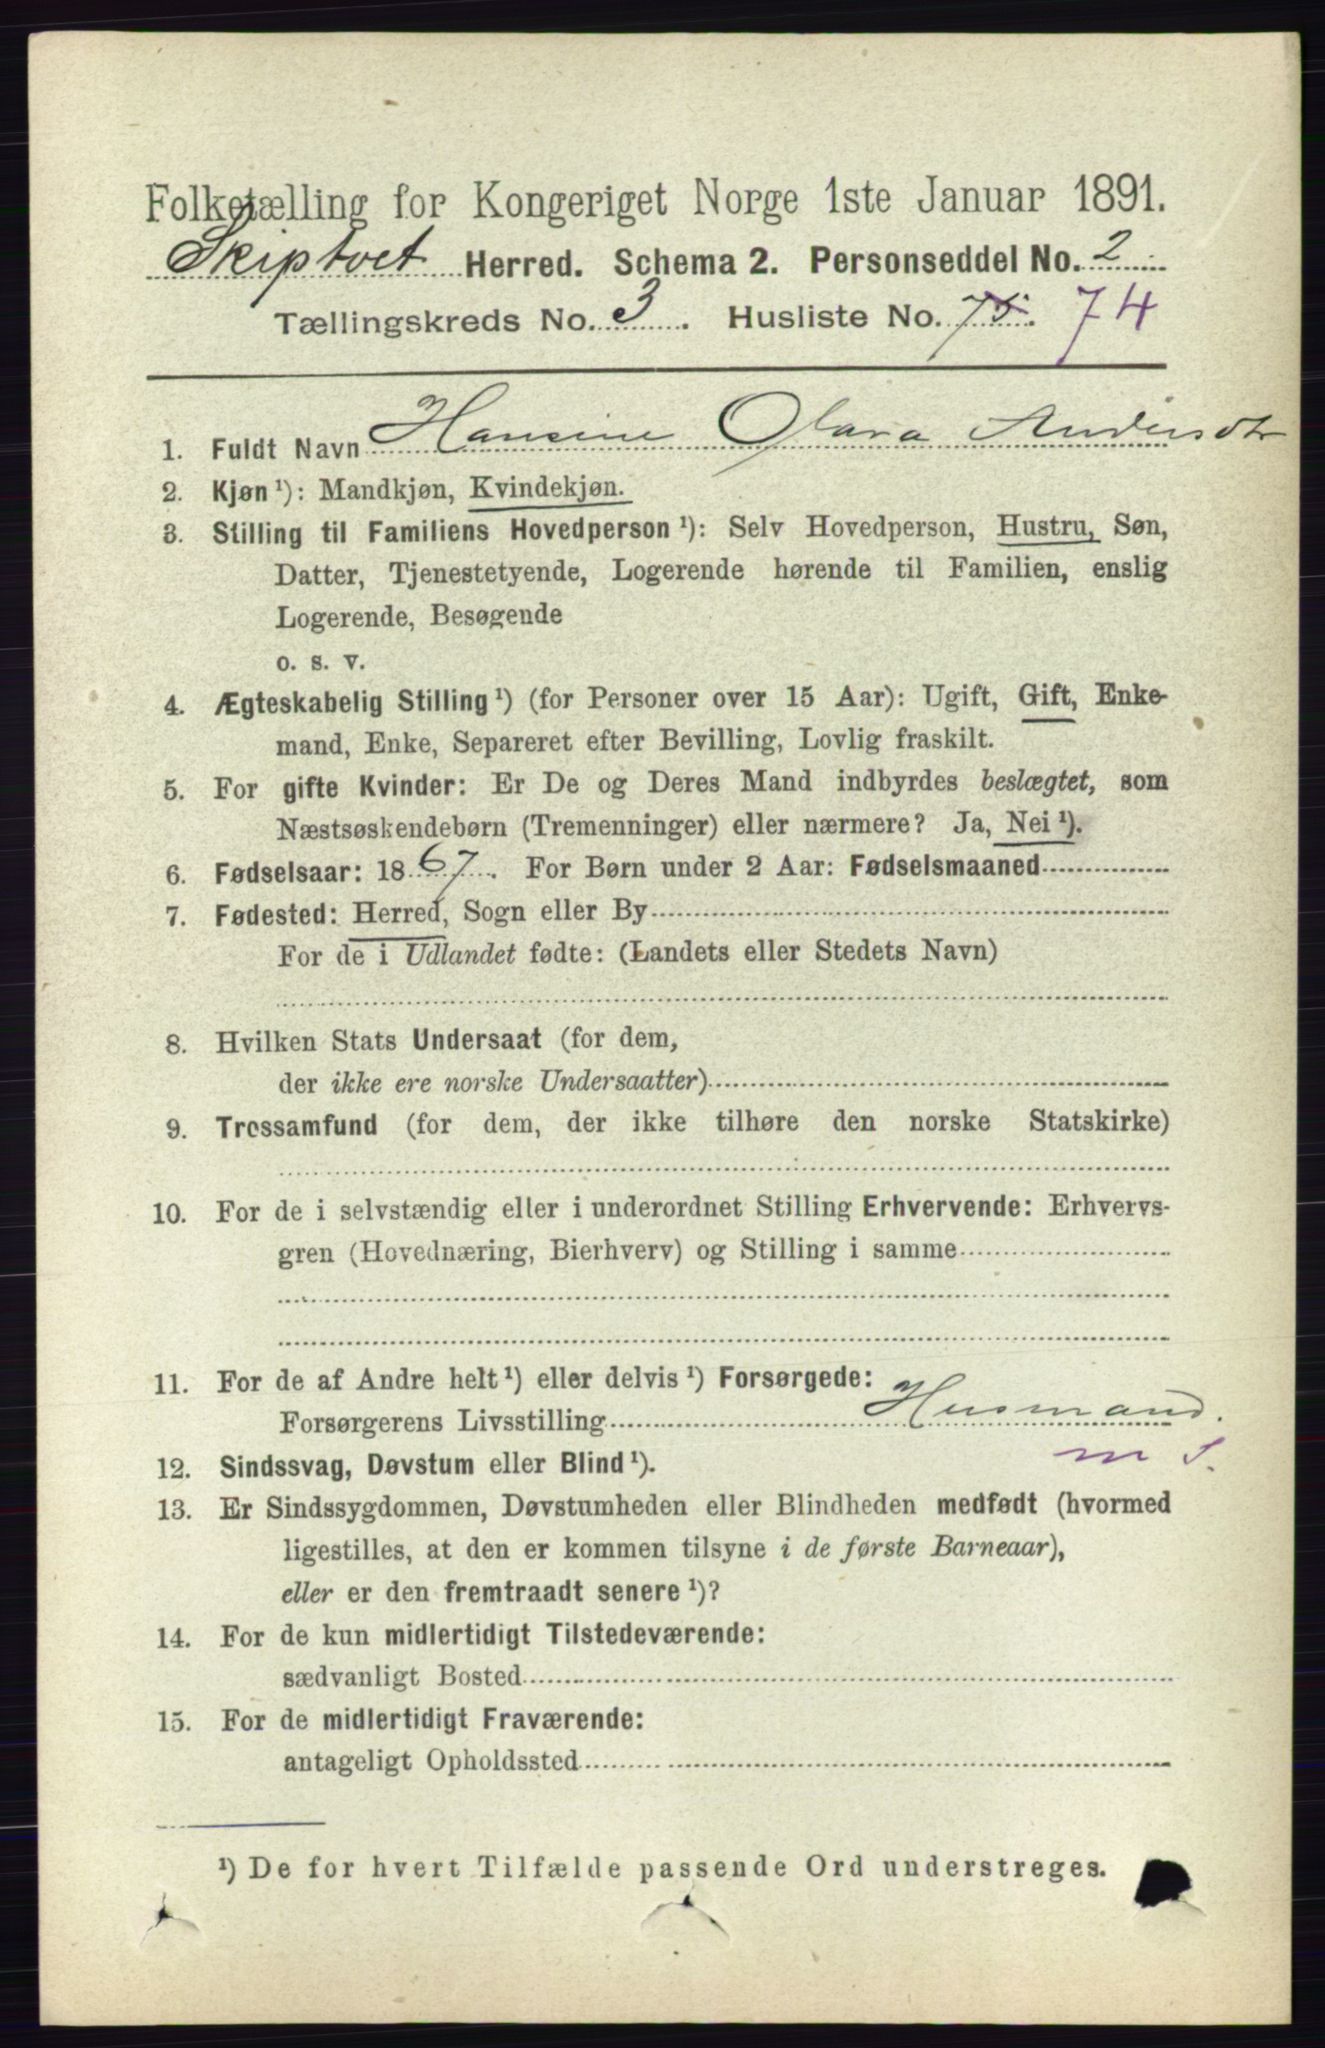 Folketælling for Kongeriget Norge 1ste Januar 1891.
Skiptvet Herred. Schema 2. Personseddel No. 2
Tællingskreds No. 3. Husliste No. 75. 74
1. Fuldt Navn Hansine Olava Andersdtr
2. Kjøn ¹): Mandkjøn, Kvindekjøn.
3. Stilling til Familiens Hovedperson ¹): Selv Hovedperson, Hustru, Søn,
Datter, Tjenestetyende, Logerende hørende til Familien, enslig
Logerende, Besøgende
o. s. v.
4. Ægteskabelig Stilling ¹) (for Personer over 15 Aar): Ugift, Gift, Enke-
mand, Enke, Separeret efter Bevilling, Lovlig fraskilt.
5. For gifte Kvinder: Er De og Deres Mand indbyrdes beslægtet, som
Næstsøskendebørn (Tremenninger) eller nærmere? Ja, Nei ¹).
6. Fødselsaar: 1867. For Børn under 2 Aar: Fødselsmaaned
7. Fødested: Herred, Sogn eller By
For de i Udlandet fødte: (Landets eller Stedets Navn)
8. Hvilken Stats Undersaat (for dem,
der ikke ere norske Undersaatter)
9. Trossamfund (for dem, der ikke tilhøre den norske Statskirke)
10. For de i selvstændig eller i underordnet Stilling Erhvervende: Erhvervs-
gren (Hovednæring, Bierhverv) og Stilling i samme
11. For de af Andre helt ¹) eller delvis ¹) Forsørgede:
Forsørgerens Livsstilling Husmand.
m S.
12. Sindssvag, Døvstum eller Blind ¹).
13. Er Sindssygdommen, Døvstumheden eller Blindheden medfødt (hvormed
ligestilles, at den er kommen tilsyne i de første Barneaar),
eller er den fremtraadt senere ¹)?
14. For de kun midlertidigt Tilstedeværende:
sædvanligt Bosted
15. For de midlertidigt Fraværende:
antageligt Opholdssted
¹) De for hvert Tilfælde passende Ord understreges.